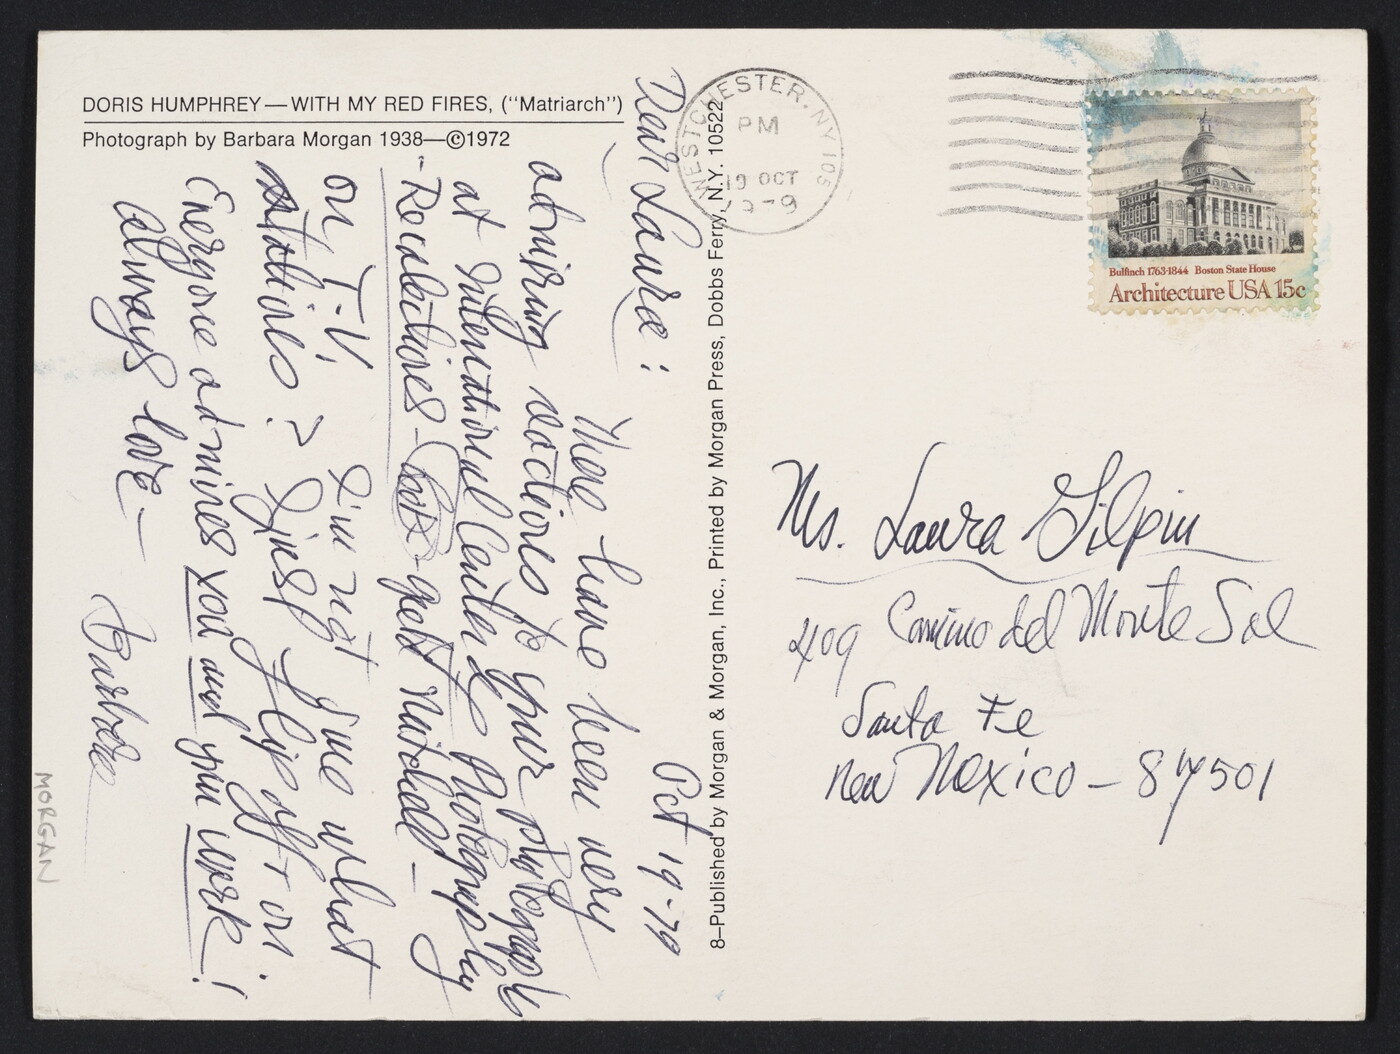 DORIS HUMPHREY—WITH MY RED FIRES, ("Matriarch")
Photograph by Barbara Morgan 1938—©1972
Oct 19-79
Dear Laura:
There have been very
admiring reactions to your photographs
at International Center of Photography
"Recollections - get Mitchell -
on T.V. I'm not sure what
stations? Just flip off + on!
Everyone admires you and your work!
Always love -
Barbara
MORGAN
8–Published by Morgan & Morgan, Inc., Printed by Morgan Press, Dobbs Ferry, N.Y. 10522
WESTCHESTER, NY 105
PM
19 OCT
1979
Bulfinch 1763-1844 Boston State House
Architecture USA 15c
Ms. Laura Gilpin
409 Camino del Monte Sol
Santa Fe
New Mexico - 87501